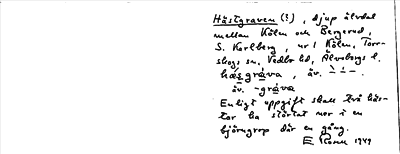 Hästgraven (?), djup älvdal
mellan Kölen och Bergerud,
S. Karlberg, nr 1 Kölen, Torr-
skogs sn, Vedbo hd, Älvsborgs l.
hæsgráva, äv. `-´-.
äv. -gráva
Enligt uppgift skall två häs-
tar ha störtat ner i en
björngrop där en gång.
E 1949